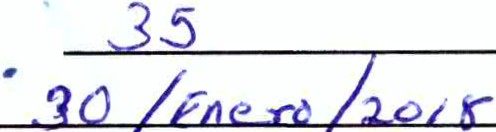 35
30/Enero/2018